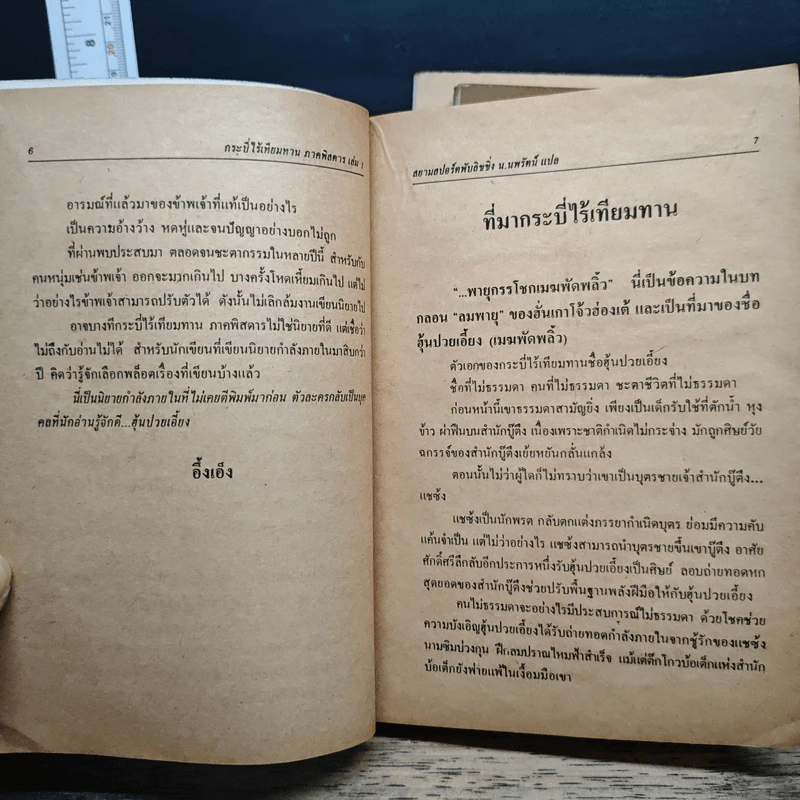 8
21
20
6
กระบี่ไร้เทียมทาน ภาคพิสดาร เล่ม 1
อารมณ์ที่แล้วมาของข้าพเจ้าที่แท้เป็นอย่างไร
เป็นความอ้างว้าง หดหู่และจนปัญญาอย่างบอกไม่ถูก
ที่ผ่านพบประสบมา ตลอดจนชะตากรรมในหลายปีนี้ สำหรับกับ
คนหนุ่มเช่นข้าพเจ้า ออกจะมากเกินไป บางครั้งโหดเหี้ยมเกินไป แต่ไม่
ว่าอย่างไรข้าพเจ้าสามารถปรับตัวได้ ดังนั้นไม่เลิกล้มงานเขียนนิยายไป
อาจบางทีกระบี่ไร้เทียมทาน ภาคพิสดารไม่ใช่นิยายที่ดี แต่เชื่อว่า
ไม่ถึงกับอ่านไม่ได้ สำหรับนักเขียนที่เขียนนิยายกำลังภายในมาสิบกว่า
ปี คิดว่ารู้จักเลือกพล็อตเรื่องที่เขียนบ้างแล้ว
นี่เป็นนิยายกำลังภายในที่ไม่เคยตีพิมพ์มาก่อน ตัวละครกลับเป็นบุค
คลที่นักอ่านรู้จักดี...ฮุ้นปวยเอี้ยง
อึ้งเอ็ง
7
สยามสปอร์ตพับลิชชิ่ง น.นพรัตน์ แปล
ที่มากระบี่ไร้เทียมทาน
"...พายุกรรโชกเมฆพัดพลิ้ว" นี่เป็นข้อความในบท
กลอน "ลมพายุ" ของฮั่นเกาโจ้วฮ่องเต้ และเป็นที่มาของชื่อ
ฮุ้นปวยเอี้ยง (เมฆพัดพลิ้ว)
ตัวเอกของกระบี่ไร้เทียมทานชื่อฮุ้นปวยเอี้ยง
ชื่อที่ไม่ธรรมดา คนที่ไม่ธรรมดา ชะตาชีวิตที่ไม่ธรรมดา
ก่อนหน้านี้เขาธรรมดาสามัญยิ่ง เพียงเป็นเด็กรับใช้ที่ตักน้ำ หุง
ข้าว ผ่าฟืนบนสำนักบู๊ตึง เนื่องเพราะชาติกำเนิดไม่กระจ่าง มักถูกศิษย์วัย
ฉกรรจ์ของสำนักบู๊ตึงเย้ยหยันกลั่นแกล้ง
ตอนนั้นไม่ว่าผู้ใดก็ไม่ทราบว่าเขาเป็นบุตรชายเจ้าสำนักบู๊ตึง...
แชซ้ง
แชซ้งเป็นนักพรต กลับตกแต่งภรรยากำเนิดบุตร ย่อมมีความคับ
แค้นจำเป็น แต่ไม่ว่าอย่างไร แชซ้งสามารถนำบุตรชายขึ้นเขาบู๊ตึง อาศัย
ศักดิ์ศรีลึกลับอีกประการหนึ่งรับฮุ้นปวยเอี้ยงเป็นศิษย์ ลอบถ่ายทอดหก
สุดยอดของสำนักบู๊ตึงช่วยปรับพื้นฐานพลังฝีมือให้กับฮุ้นปวยเอี้ยง
คนไม่ธรรมดาจะอย่างไรมีประสบการณ์ไม่ธรรมดา ด้วยโชคช่วย
ความบังเอิญฮุ้นปวยเอี้ยงได้รับถ่ายทอดกำลังภายในจากชู้รักของแชซ้ง
นามซิมบ่วงกุน ฝึกลมปราณไหมฟ้าสำเร็จ แม้แต่ต๊กโกวบ้อเต็กแห่งสำนัก
บ้อเต็กยังพ่ายแพ้ในเงื้อมมือเขา